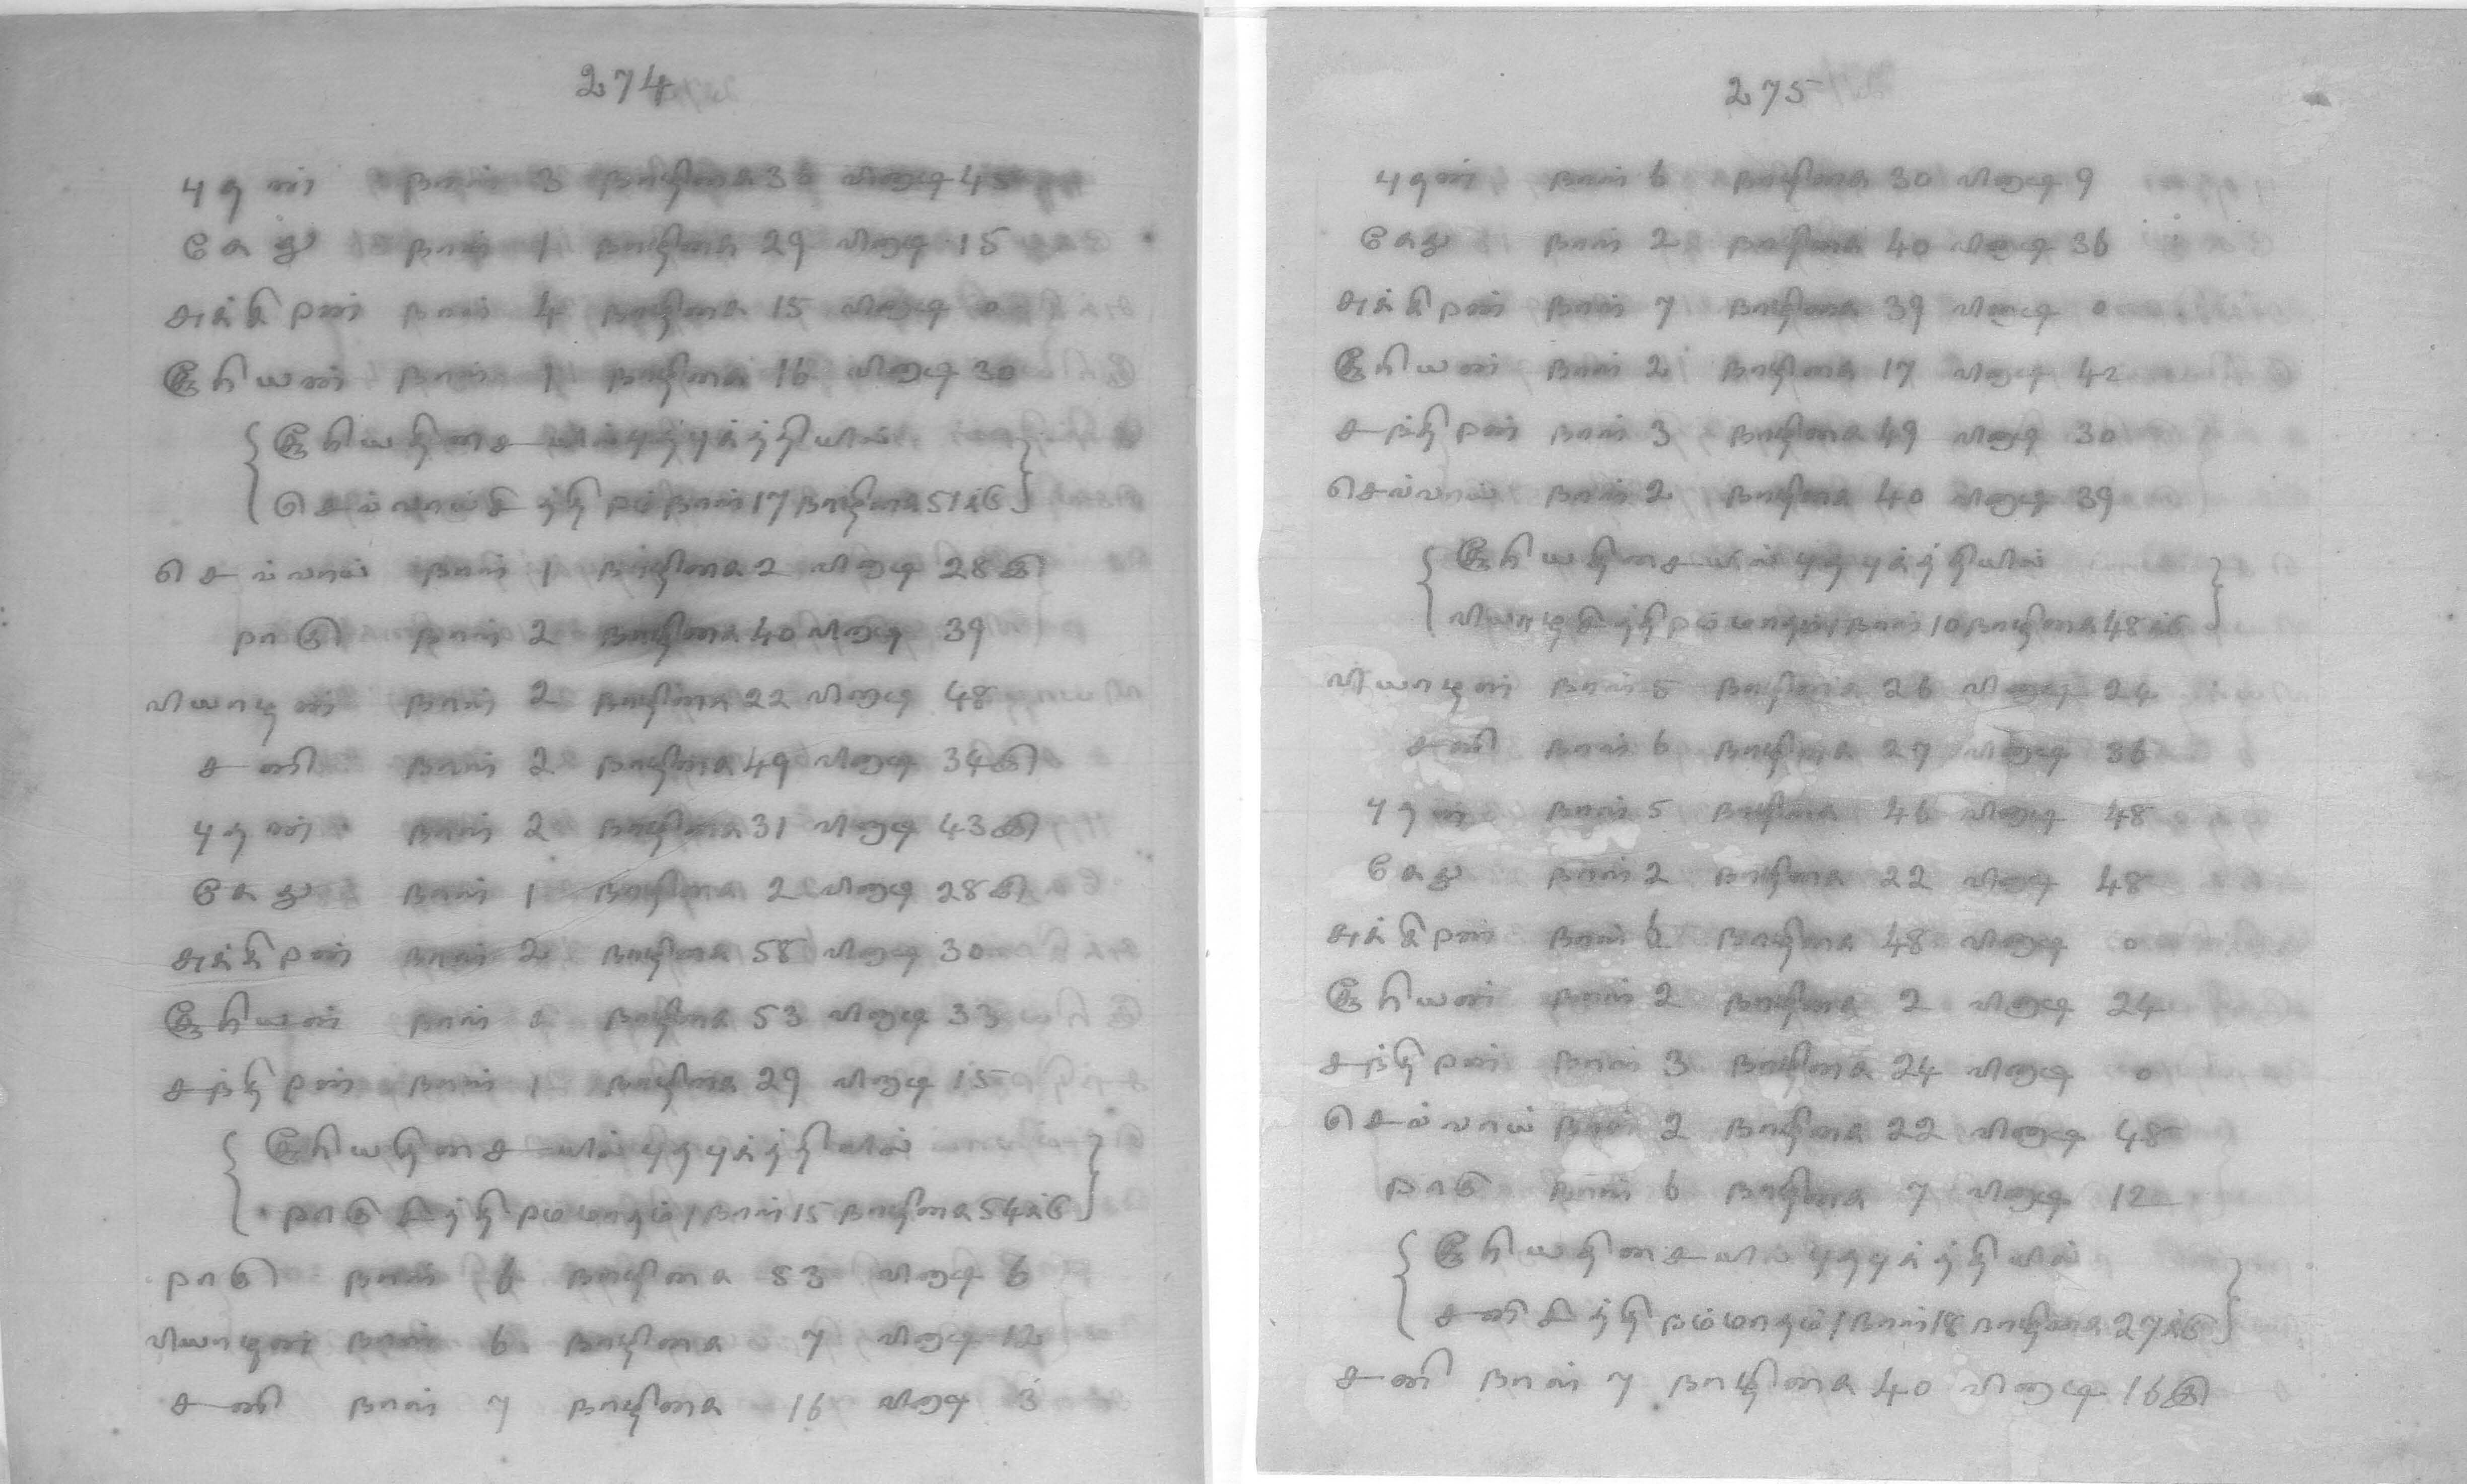 274
புதன் நாள் 3 நாழிகை 30 வினாடி 45
கேது நாள் 1 நாழிகை 29 வினாடி 15
சுக்கிரன் நாள் 4 நாழிகை 15 வினாடி 0
சூரியன் நாள் 1 நாழிகை 16 வினாடி 30
{ சூரியதிசையில் புதபுத்தியில்
செவ்வாய்சித்திரம் நாள் 17 நாழிகை 51க்கு }
செவ்வாய் நாள் 1 நாழிகை 2 வினாடி 28இ
ராகு நாள் 2 நாழிகை 40 வினாடி 39
வியாழன் நாள் 2 நாழிகை 22 வினாடி 48
சனி நாள் 2 நாழிகை 49 வினாடி 34இ
புதன் நாள் 2 நாழிகை 31 வினாடி 43இ
கேது நாள் 1 நாழிகை 2 வினாடி 28இ
சுக்கிரன் நாள் 2 நாழிகை 58 வினாடி 30
சூரியன் நாள் நாழிகை 53 வினாடி 33
சந்திரன் நாள் 1 நாழிகை 29 வினாடி 15
{ சூரியதிசையில் புதபுத்தியில்
ராகு சித்திரம் மாதம் 1 நாள் 15 நாழிகை 54க்கு }
ராகு நாள் 6 நாழிகை 53 வினாடி 6
வியாழன் நாள் 6 நாழிகை 7 வினாடி 12
சனி நாள் 7 நாழிகை 16 வினாடி 3
275
புதன் நாள் 6 நாழிகை 30 வினாடி 9
கேது நாள் 2 நாழிகை 40 வினாடி 36
சுக்கிரன் நாள் 7 நாழிகை 39 வினாடி 0
சூரியன் நாள் 2 நாழிகை 17 வினாடி 42
சந்திரன் நாள் 3 நாழிகை 49 வினாடி 30
செவ்வாய் நாள் 2 நாழிகை 40 வினாடி 39
{ சூரியதிசையில் புதபுத்தியில்
வியாழசித்திரம் மாதம் 1 நாள் 10 நாழிகை 48க்கு }
வியாழன் நாள் 5 நாழிகை 26 வினாடி 24
சனி நாள் 6 நாழிகை 27 வினாடி 36
புதன் நாள் 5 நாழிகை 46 வினாடி 48
கேது நாள் 2 நாழிகை 22 வினாடி 48
சுக்கிரன் நாள் 6 நாழிகை 48 வினாடி 0
சூரியன் நாள் 2 நாழிகை 2 வினாடி 24
சந்திரன் நாள் 3 நாழிகை 24 வினாடி 0
செவ்வாய் நாள் 2 நாழிகை 22 வினாடி 48
ராகு நாள் 6 நாழிகை 7 வினாடி 12
{ சூரியதிசையில் புதபுத்தியில்
சனிசித்திரம் மாதம் 1 நாள் 18 நாழிகை 27க்கு }
சனி நாள் 7 நாழிகை 40 வினாடி 16இ